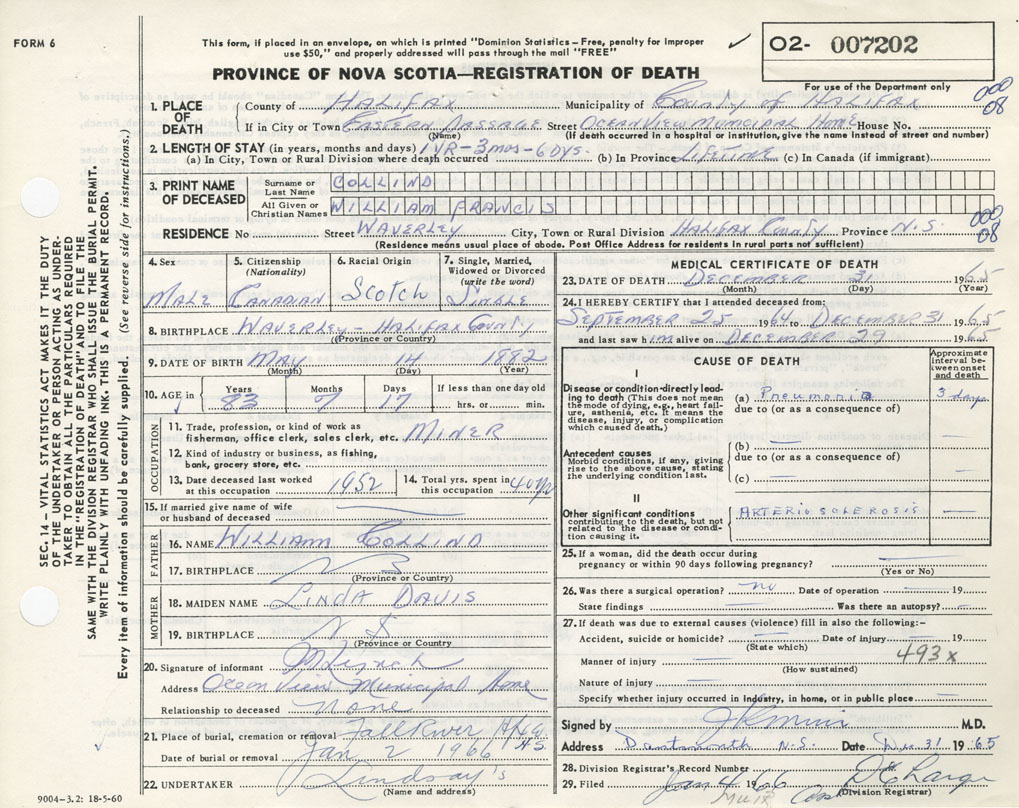 FORM 6
This form, if placed in an envelope, on which is printed "Dominion Statistics—Free, penalty for improper
use $50," and properly addressed will pass through the mail "FREE"
PROVINCE OF NOVA SCOTIA—REGISTRATION OF DEATH
02- 007202
For use of the Department only
000
08
1. PLACE OF DEATH
County of HALIFAX Municipality of COUNTY OF HALIFAX
If in City or Town EASTERN PASSAGE Street OCEAN VIEW MUNICIPAL HOME House No.
(Name) (If death occurred in a hospital or institution, give the name instead of street and number)
2. LENGTH OF STAY (in years, months and days) 1 YR-3 mos-6 DYS.
(a) In City, Town or Rural Division where death occurred (b) In Province LIFETIME (c) In Canada (if immigrant)
3. PRINT NAME OF DECEASED
Surname or Last Name COLLIND
All Given or Christian Names WILLIAM FRANCIS
000
08
RESIDENCE No Street WAVERLEY City, Town or Rural Division HALIFAX County Province N.S.
(Residence means usual place of abode. Post Office Address for residents in rural parts not sufficient)
4. Sex
MALE
5. Citizenship (Nationality)
CANADIAN
6. Racial Origin
Scotch
7. Single, Married, Widowed or Divorced (write the word)
SINGLE
8. BIRTHPLACE WAVERLEY - HALIFAX COUNTY
(Province or Country)
9. DATE OF BIRTH MAY 14 1882
(Month) (Day) (Year)
10. AGE in Years Months Days If less than one day old
83 7 17 hrs. or min.
OCCUPATION
11. Trade, profession, or kind of work as
fisherman, office clerk, sales clerk, etc. MINER
12. Kind of industry or business, as fishing,
bank, grocery store, etc.
13. Date deceased last worked at this occupation 1952
14. Total yrs. spent in this occupation 40 yrs
15. If married give name of wife
or husband of deceased
FATHER
16. NAME WILLIAM COLLIND
17. BIRTHPLACE N S
(Province or Country)
MOTHER
18. MAIDEN NAME LINDA DAVIS
19. BIRTHPLACE N S
(Province or Country)
20. Signature of informant
Address Ocean View Municipal Home
Relationship to deceased None
21. Place of burial, cremation or removal Fall River
Date of burial or removal Jan 2 1966
22. UNDERTAKER Lindsay's
(Name and address)
9004-3.2: 18-5-60
MEDICAL CERTIFICATE OF DEATH
23. DATE OF DEATH DECEMBER 31 1965
(Month) (Day) (Year)
24. I HEREBY CERTIFY that I attended deceased from:
SEPTEMBER 25 1964 to DECEMBER 31 1965
and last saw him alive on DECEMBER 29 1965
CAUSE OF DEATH
Approximate interval between onset and death
I
Disease or condition directly leading to death (This does not mean the mode of dying, e.g., heart failure, asthenia, etc. It means the disease, injury, or complication which caused death.)
(a) Pneumonia 3 days
due to (or as a consequence of)
Antecedent causes
Morbid conditions, if any, giving rise to the above cause, stating the underlying condition last.
(b)
due to (or as a consequence of)
(c)
II
Other significant conditions
contributing to the death, but not related to the disease or condition causing it.
ARTERIOSCLEROSIS
25. If a woman, did the death occur during
pregnancy or within 90 days following pregnancy?
(Yes or No)
26. Was there a surgical operation? no Date of operation 19
State findings Was there an autopsy?
27. If death was due to external causes (violence) fill in also the following:-
Accident, suicide or homicide? Date of injury 19
(State which)
493x
Manner of injury
(How sustained)
Nature of injury
Specify whether injury occurred in Industry, in home, or in public place
Signed by M.D.
Address Dartmouth N.S. Date Dec 31 1965
28. Division Registrar's Record Number
29. Filed Jan 4 66
(Division Registrar)
SEC. 14 – VITAL STATISTICS ACT MAKES IT THE DUTY
OF THE UNDERTAKER OR PERSON ACTING AS UNDER-
TAKER TO OBTAIN ALL THE PARTICULARS REQUIRED
IN THE "REGISTRATION OF DEATH" AND TO FILE THE
SAME WITH THE DIVISION REGISTRAR WHO SHALL ISSUE THE BURIAL PERMIT.
WRITE PLAINLY WITH UNFADING INK. THIS IS A PERMANENT RECORD.
Every item of information should be carefully supplied. (See reverse side for instructions.)